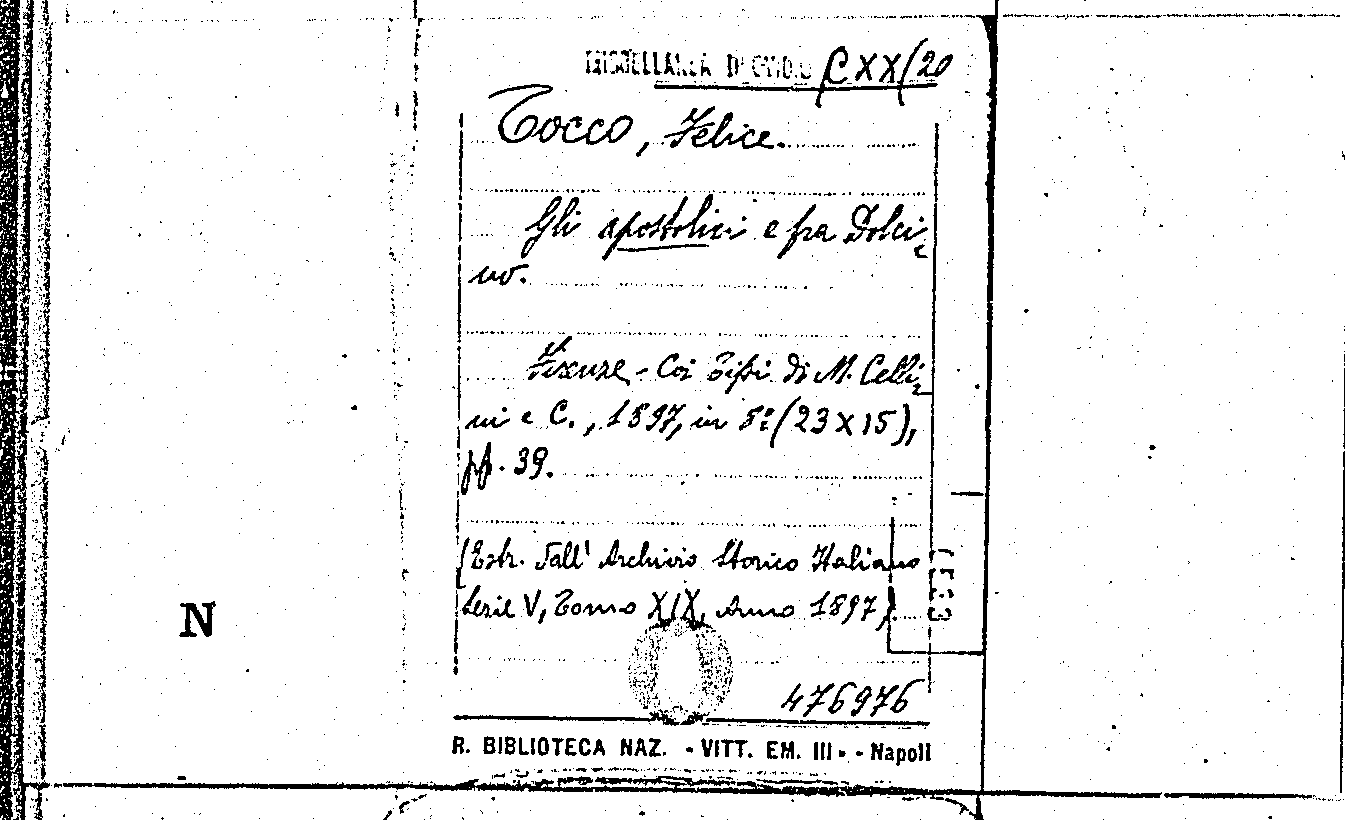 MISCELLANEA D'OVIDIO C XX/20
Tocco, Felice.
Gli apostolici e fra Dolci-
no.
Firenze - Coi Tipi di M. Celli-
ni e C., 1897, in 8º (23 x 15),
pp. 39.
(Estr. dall' Archivio Storico Italiano
Serie V, Tomo XIX, Anno 1897).
N
476976
R. BIBLIOTECA NAZ. - VITT. EM. III - - Napoli